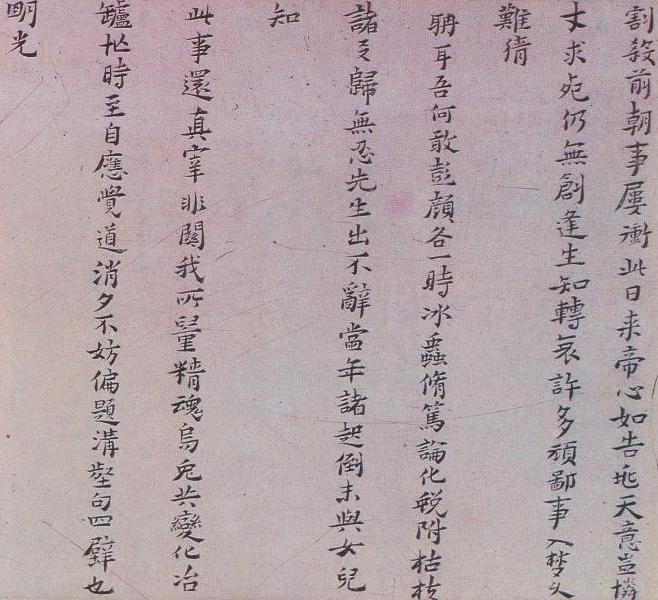 割殺前朝事屢衝此日来帝心如告兆天意豈憐
才求死仍無創逢生知轉哀許多頑鄙事入夢久
難猜
聃耳吾何敢彭顔各一時冰蟲脩篤論化蛻附枯枝
諸天歸無忍先生出不辭當年諸起倒未與女兒
知
此事還真宰非關我所量精魂烏兔共變化冶
鑪忙時至自應覺道消夕不妨偏題溝壑句四壁也
明光